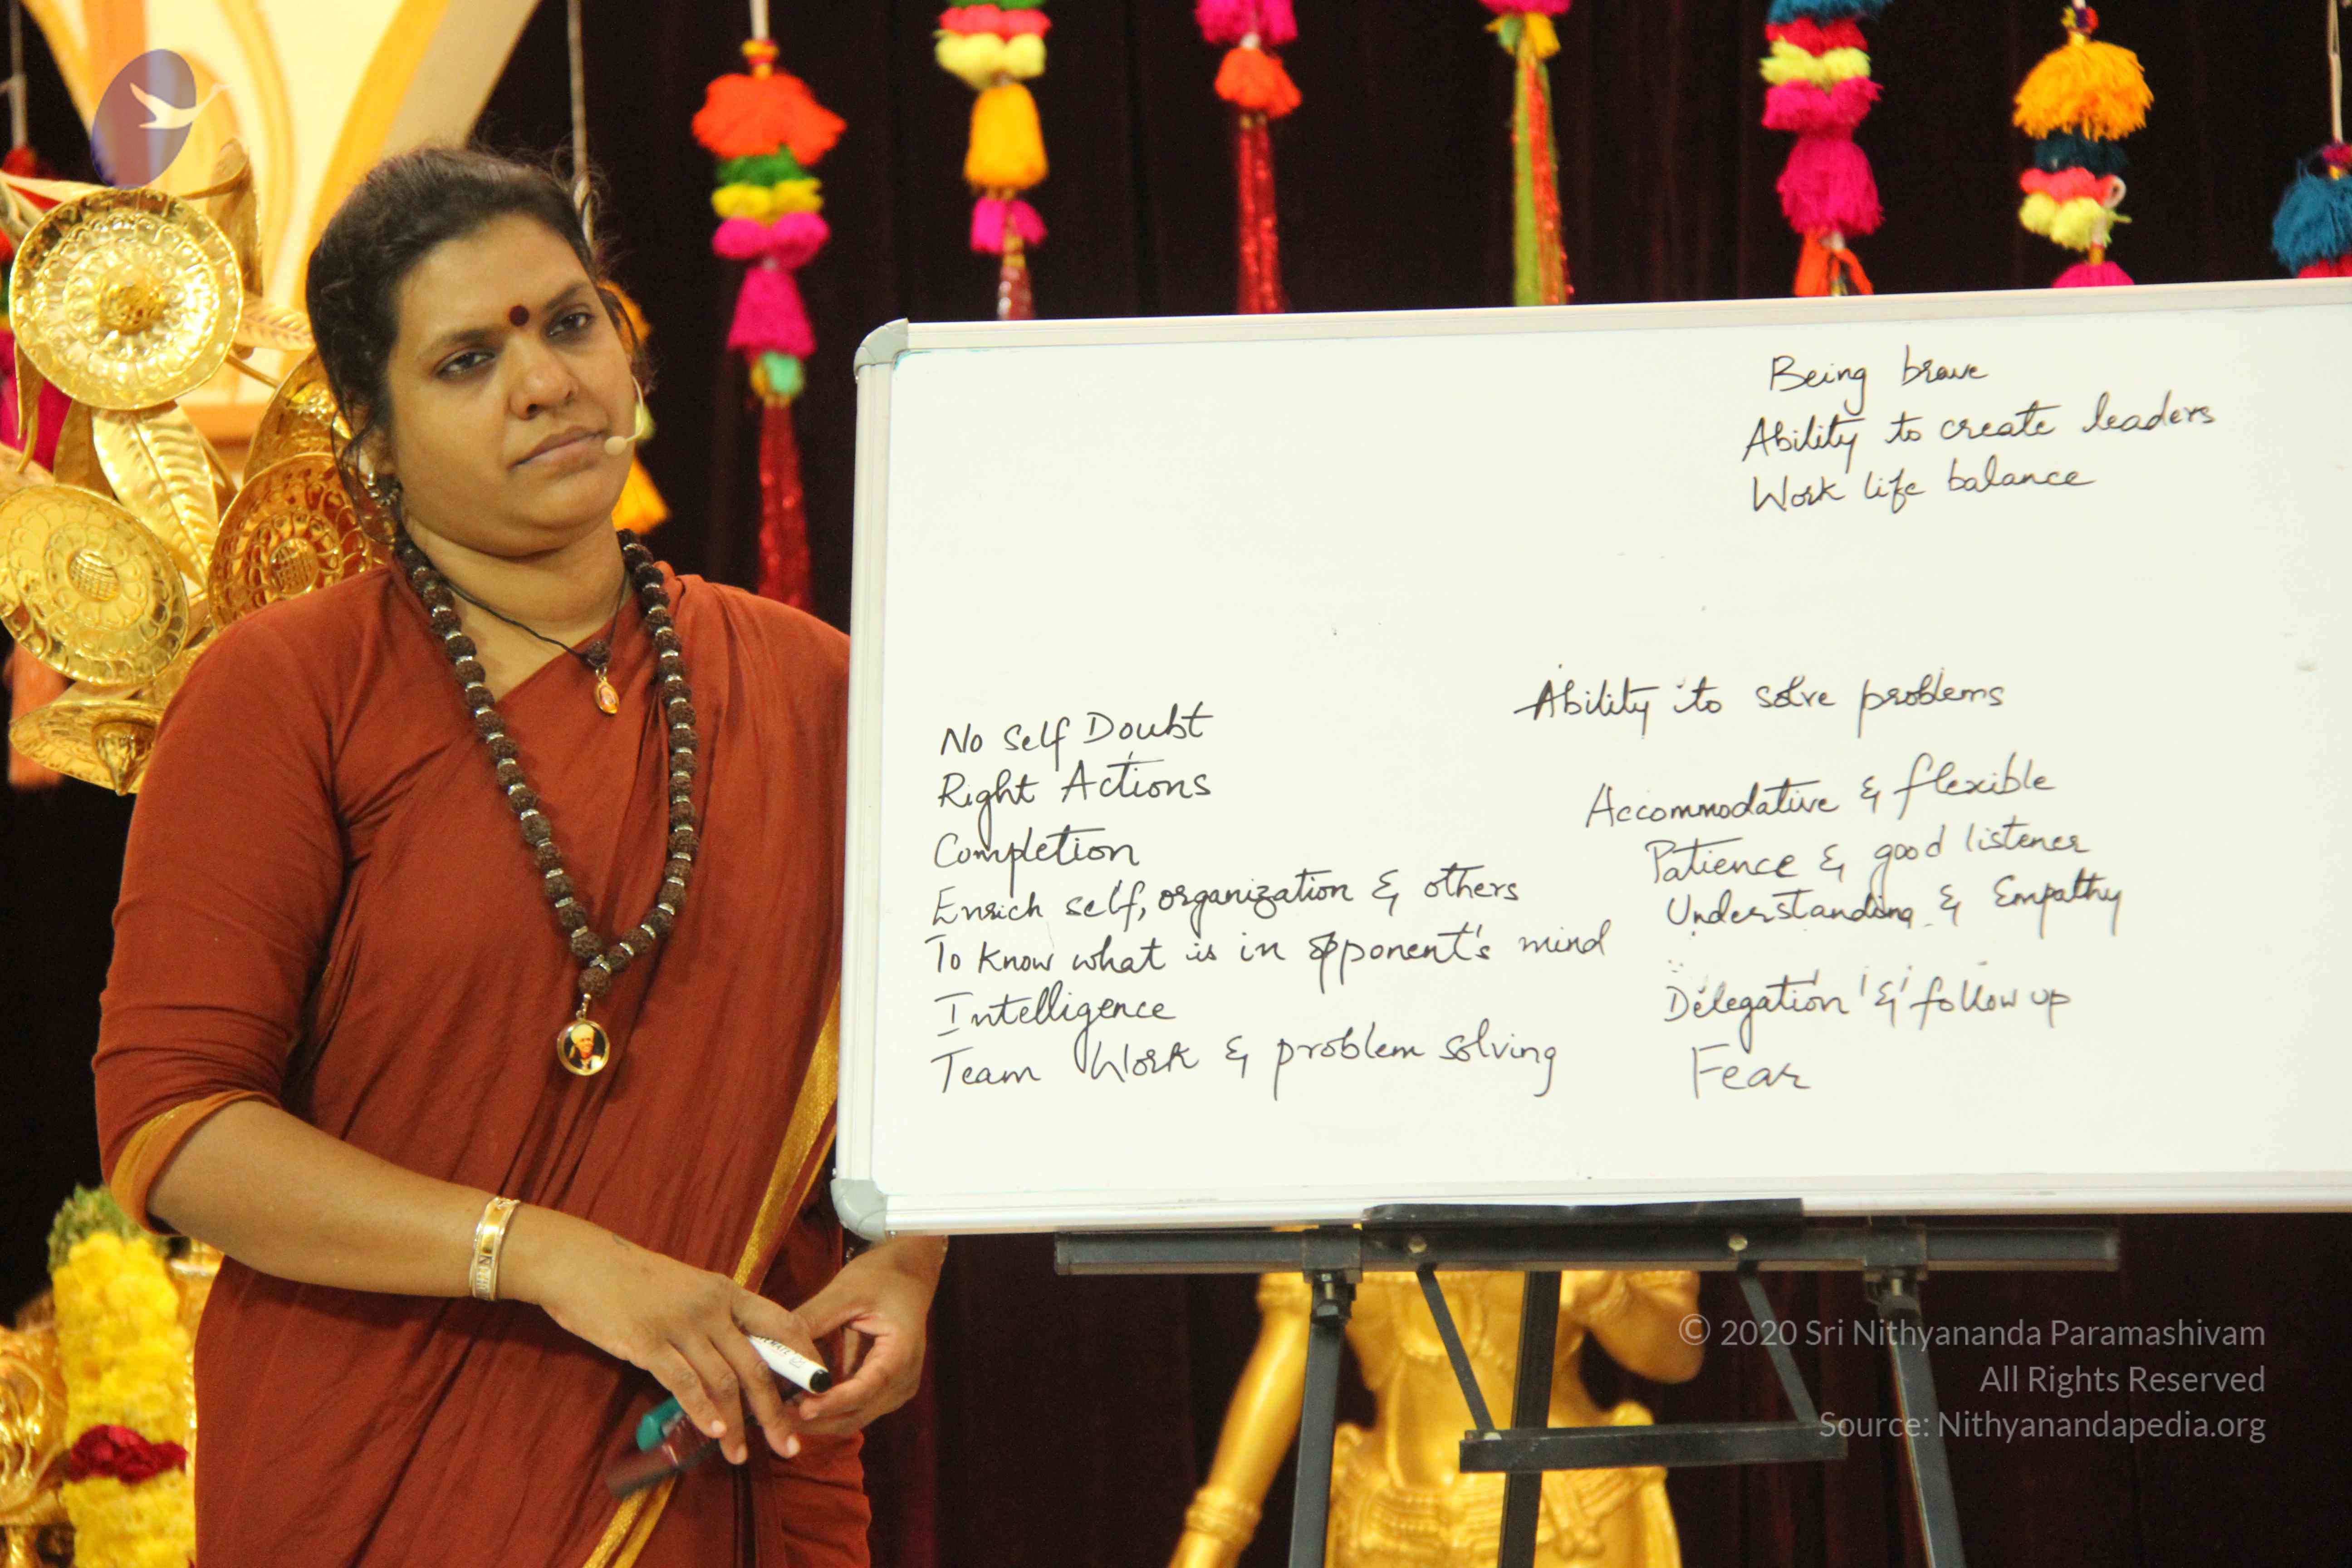 Being brave
Ability to create leaders
Work life balance
No Self Doubt
Right Actions
Completion
Enrich self, organization & others
To know what is in opponent's mind
Intelligence
Team Work & problem solving
Ability to solve problems
Accommodative & flexible
Patience & good listener
Understanding & Empathy
Delegation & follow up
Fear
© 2020 Sri Nithyananda Paramashivam
All Rights Reserved
Source: Nithyanandapedia.org